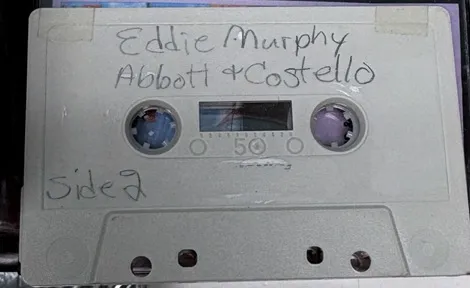 Eddie Murphy
Abbott + Costello
50
Side 2